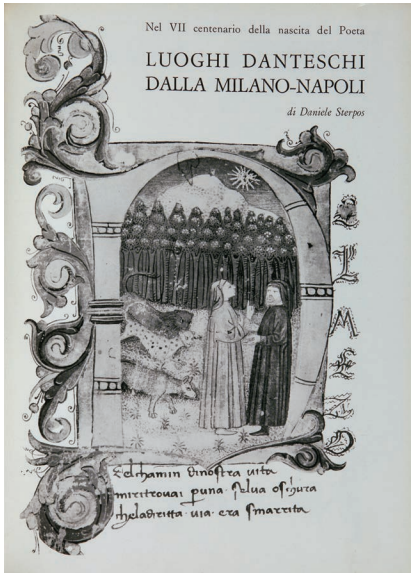 Nel VII centenario della nascita del Poeta
LUOGHI DANTESCHI
DALLA MILANO-NAPOLI
di Daniele Sterpos
L
M
E
Delchamin dinostra vita
miritrovai puna · selva oschura
cheladritta · via · era smarrita